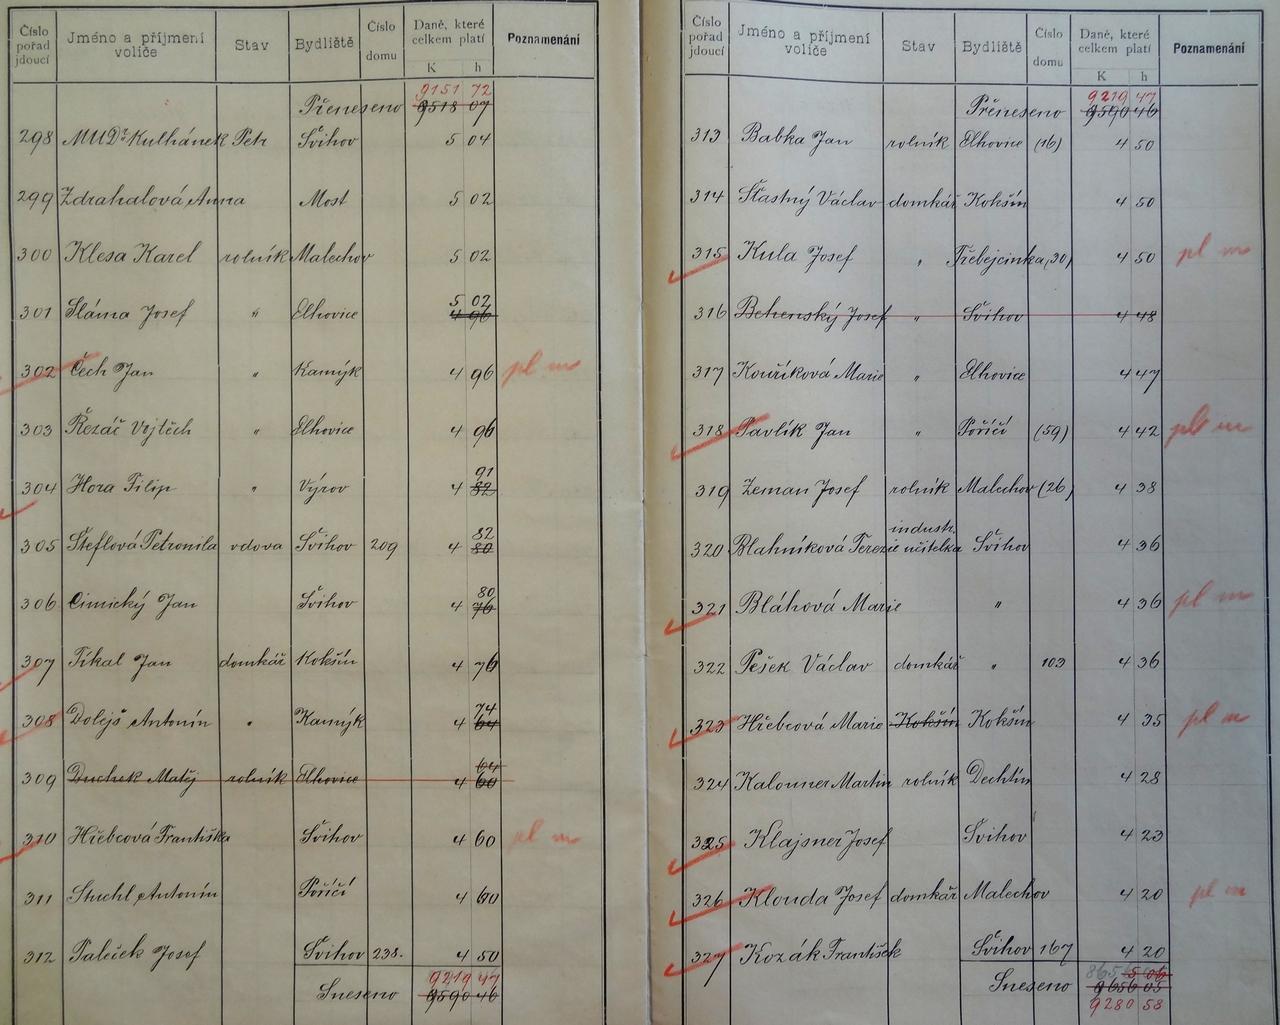 Číslo pořad jdoucí Jméno a příjmení voliče Stav Bydliště Číslo domu Daně, které celkem platí K h Poznamenání
9151 72
Přeneseno 9518 07
298 MUDr Kulhánek Petr Švihov 5 04
299 Zdrahalová Anna Most 5 02
300 Klesa Karel rolník Malechov 5 02
5 02
301 Sláma Josef " Elhovice 4 96
302 Čech Jan " Kamýk 4 96 pl m
303 Řezáč Vojtěch " Elhovice 4 96
91
304 Hora Filip " Výrov 4 82
82
305 Šteflová Petronila vdova Švihov 209 4 80
80
306 Cimický Jan Švihov 4 76
307 Tíkal Jan domkář Kokšín 4 76
74
308 Dolejš Antonín " Kamýk 4 64
64
309 Duchek Matěj rolník Elhovice 4 60
310 Hřebcová Františka Švihov 4 60 pl m
311 Stuchl Antonín Poříčí 4 60
312 Paleček Josef Švihov 238. 4 50
9219 47
Sneseno 9590 46
Číslo pořad jdoucí Jméno a příjmení voliče Stav Bydliště Číslo domu Daně, které celkem platí K h Poznamenání
9219 47
Přeneseno 9590 46
313 Babka Jan rolník Elhovice (16) 4 50
314 Šťastný Václav domkář Kokšín 4 50
315 Kula Josef " Třebejcinka (30) 4 50 pl m
316 Behenský Josef " Švihov 4 48
317 Kouříková Marie " Elhovice 4 47
318 Pavlík Jan " Poříčí (59) 4 42 pl m
319 Zeman Josef rolník Malechov (26) 4 38
industr.
320 Blahníková Terezie učitelka Švihov 4 36
321 Bláhová Marie " 4 36 pl m
322 Pešek Václav domkář " 103 4 36
323 Hřebcová Marie Kokšín Kokšín 4 35 pl m
324 Kalouner Martin rolník Dechtín 4 28
325 Klajsner Josef Švihov 4 23
326 Klouda Josef domkář Malechov 4 20 pl m
327 Kozák František Švihov 167 4 20
Sneseno 9656 05
9280 58